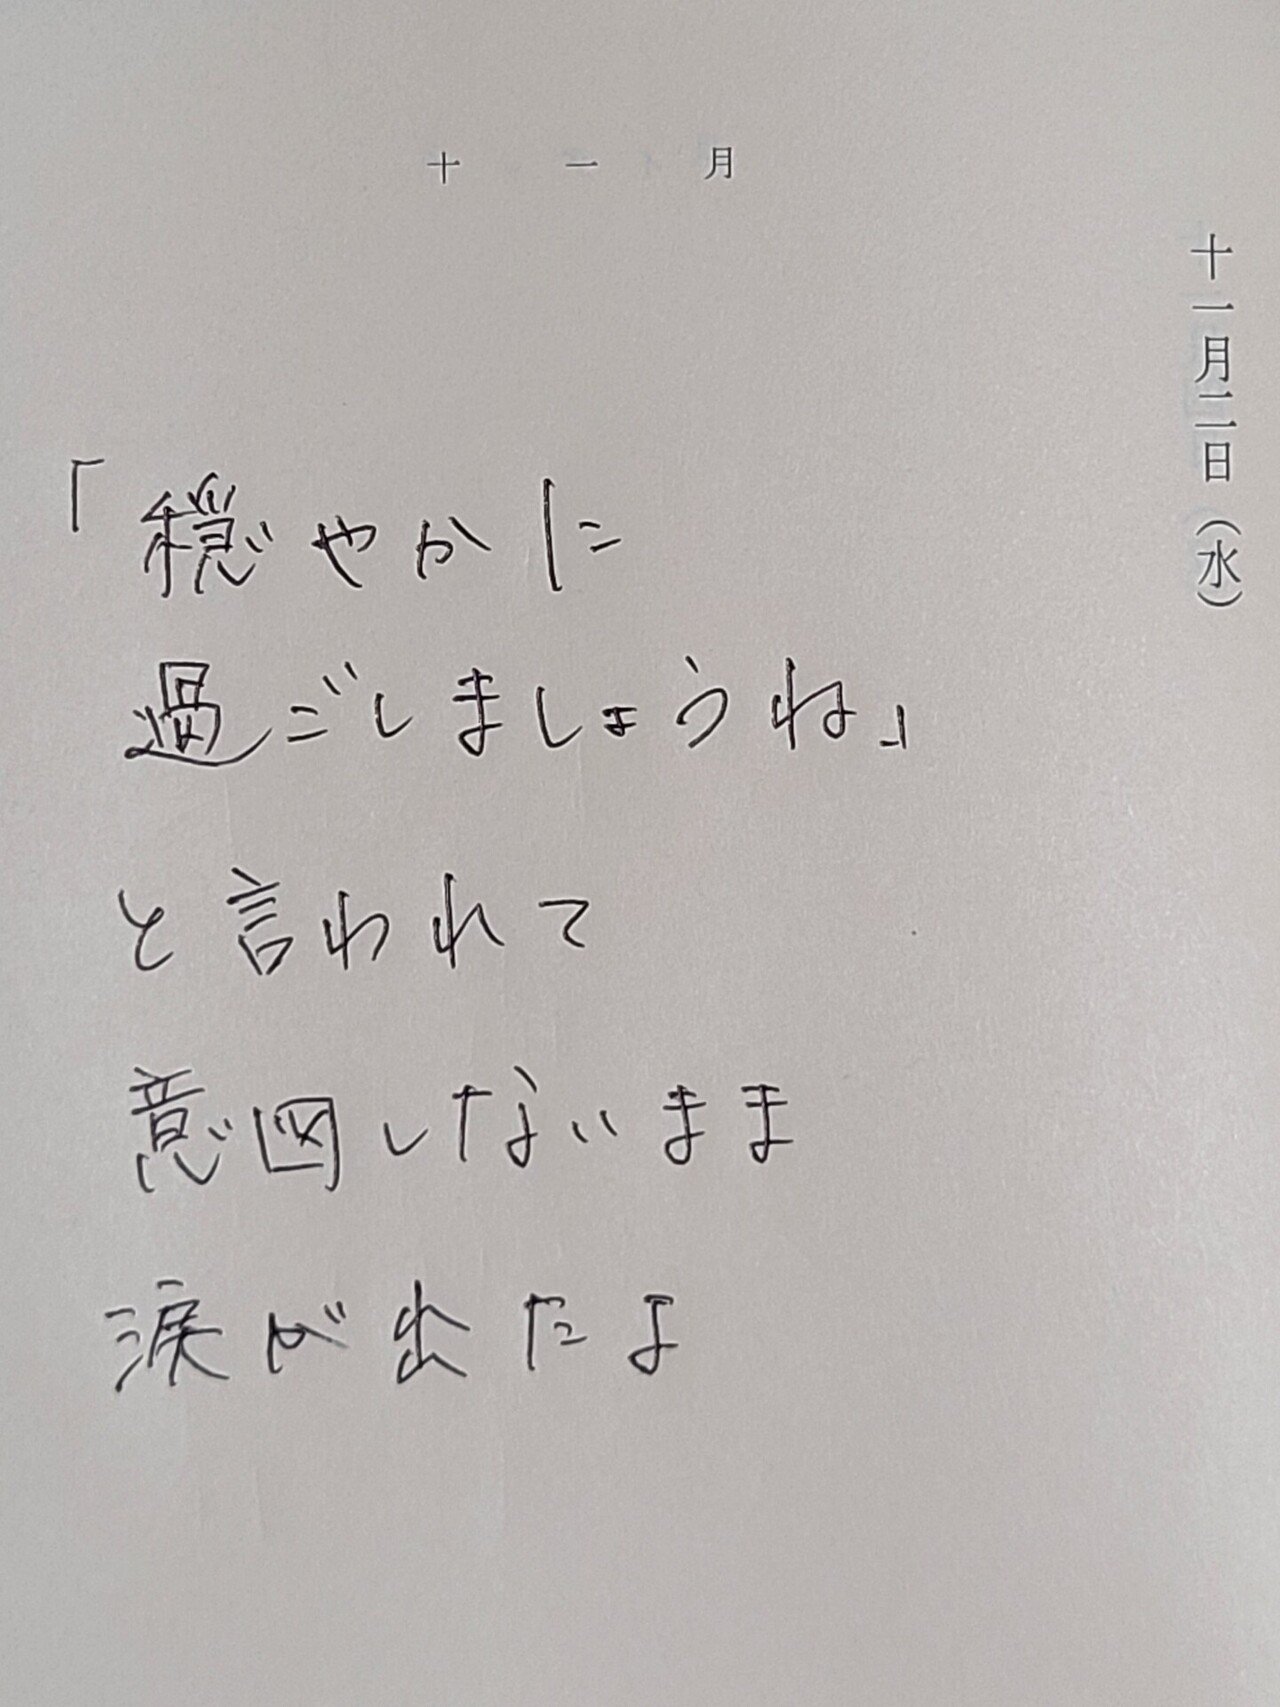 十一月
十一月二日（水）
「穏やかに
過ごしましょうね」
と言われて
意図しないまま
涙が出たよ